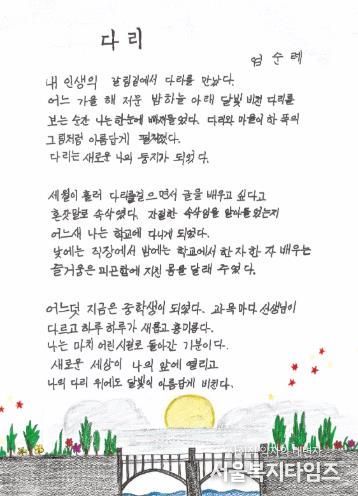 다리
엄순례
내 인생의 갈림길에서 다리를 만났다.
어느 가을 해 저문 밤하늘 아래 달빛 비친 다리를
보는 순간 나는 한눈에 빠져들었다. 다리와 마을이 한 폭의
그림처럼 아름답게 펼쳐졌다.
다리는 새로운 나의 둥지가 되었다.
세월이 흘러 다리를 걸으면서 글을 배우고 싶다고
혼잣말로 속삭였다. 간절한 속삭임을 알아들었는지
어느새 나는 학교에 다니게 되었다.
낮에는 직장에서 밤에는 학교에서 한 자 한 자 배우는
즐거움은 피곤함에 지친 몸을 달래 주었다.
어느덧 지금은 중학생이 되었다. 과목마다 선생님이
다르고 하루 하루가 새롭고 흥미롭다.
나는 마치 어린시절로 돌아간 기분이다.
새로운 세상이 나의 앞에 열리고
나의 다리 위에도 달빛이 아름답게 비친다.
서울복지타임즈